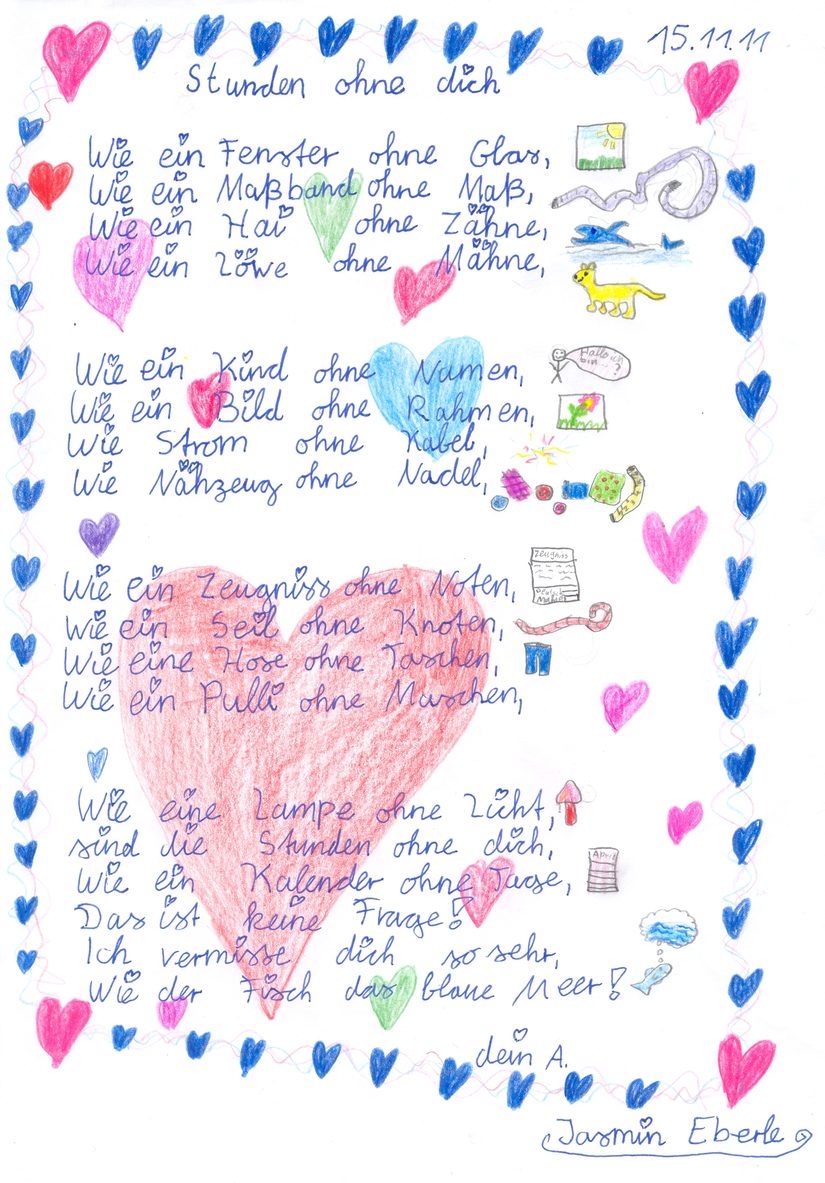 15.11.11
Stunden ohne dich
Wie ein Fenster ohne Glas,
Wie ein Maßband ohne Maß,
Wie ein Hai ohne Zähne,
Wie ein Löwe ohne Mähne,
Wie ein Kind ohne Namen,
Hallo ich
bin...?
Wie ein Bild ohne Rahmen,
Wie Strom ohne Kabel,
Wie Nähzeug ohne Nadel,
Zeugniss
Wie ein Zeugniss ohne Noten,
Wie ein Seil ohne Knoten,
Wie eine Hose ohne Taschen,
Wie ein Pulli ohne Maschen,
Wie eine Lampe ohne Licht,
sind die Stunden ohne dich,
April
Wie ein Kalender ohne Tage,
Das ist keine Frage!
Ich vermisse dich so sehr,
Wie der Fisch das blaue Meer!
dein A.
Jasmin Eberle